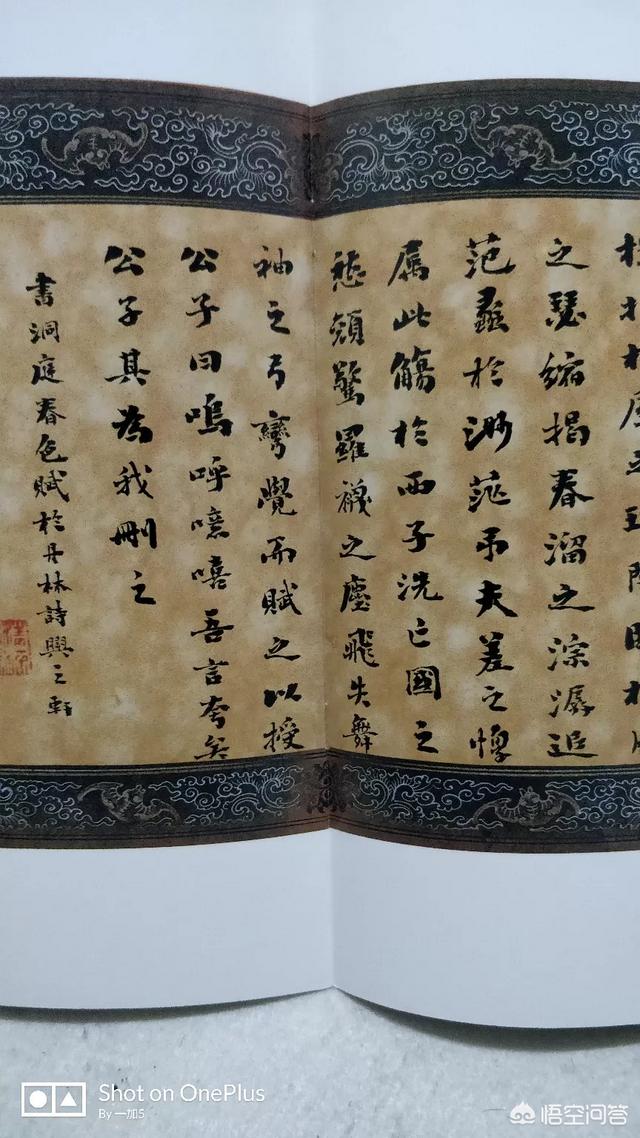 之瑟縮揭春溜之淙潺追
范蠡於渺茫吊夫差之惸
屬此觴於西子洗亡國之
愁顏驚羅襪之塵飛失舞
袖之弓彎覺而賦之以授
公子曰嗚呼噫嘻吾言夸矣
公子其為我刪之
書洞庭春色賦於丹林詩興之軒
Shot on OnePlus
By 一加5
悟空问答